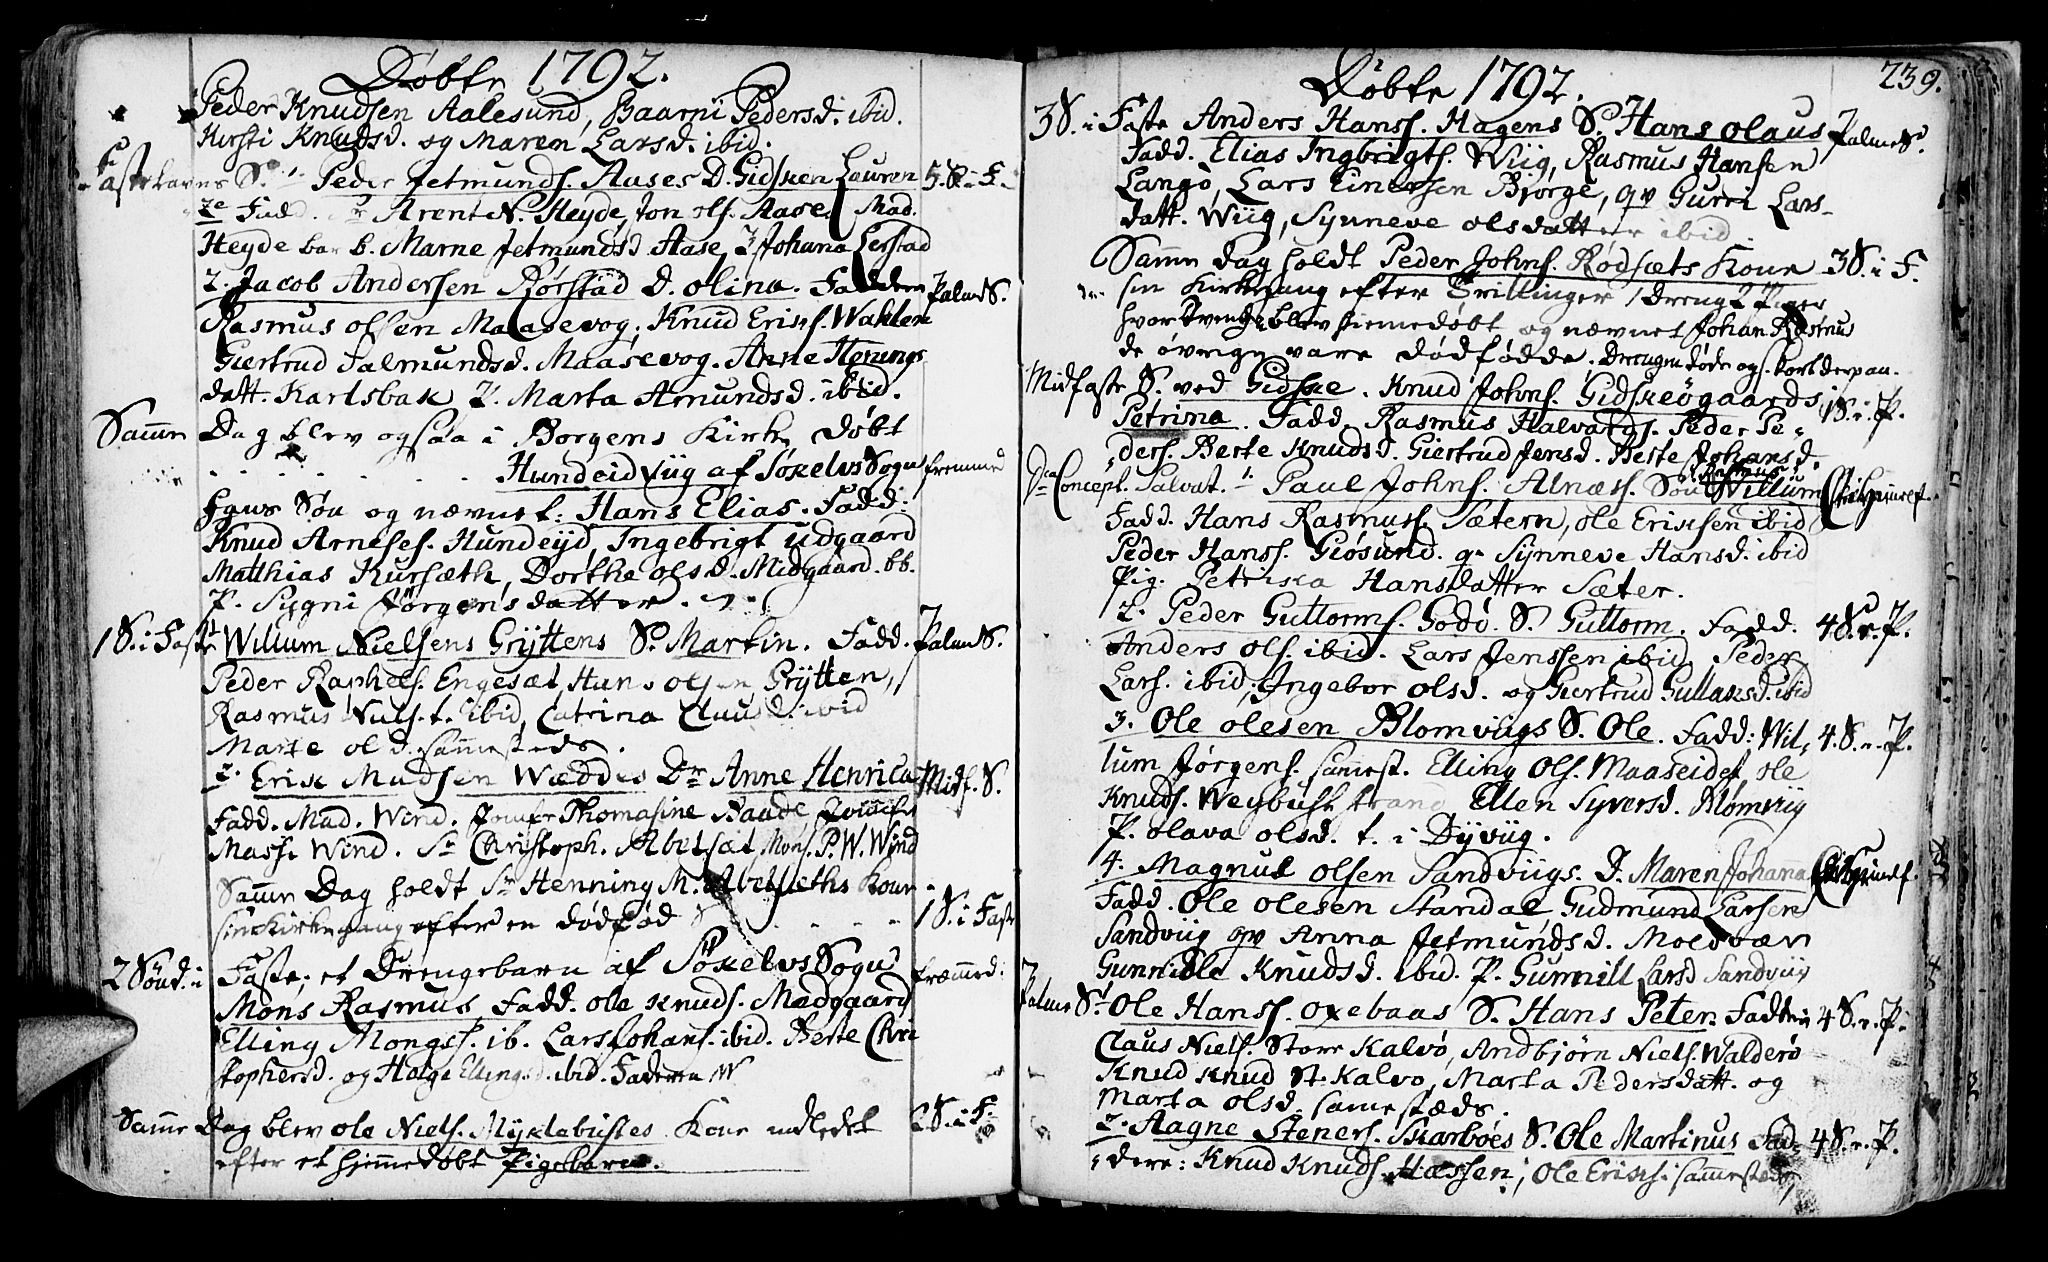 Døbte 1792.
Peder Knudsen Aalesund, Baarni Pedersd. ibid.
Kirsti Knudsd. og Maren Larsd. ibid.
Fastelavns S. 1. Peder Jetmunds. Aases D. Gidsken Lauren 5 S. i F.
ze Fadd. Sr Arent N. Heyde, Jon Ols. Aase Mad.
Heyde bar b. Marne Jetmundsd Aase, J. Johana Lerstad
2. Jacob Andersen Rørstad D. Olina. Faddere Palm S.
Rasmus Olsen Maasevog. Knud Eriks. Wahlen
Giertrud Salmundsd. Maasevog. Anne Henings
datt. Karlsbak P. Marta Amundsd. ibid.
Samme Dag blev ogsaa i Borgens Kirke døbt
Hundeidviig af Søkelvs Sogn fremmed
hans Søn og nævnet: Hans Elias. Fadd:
Knud Arneses. Hundeyd, Ingebrigt udgaard
Matthias Kursæth, Dorthe Olsd. Midgaard. bb.
P. Sygni Jørgensdatter.
1 S. i Faste Willum Nielsens Grÿttens S. Martin. Fadd. Palm S.
Peder Raphels. Engesæt, Hans Olsen Grÿtten,
Rasmus Niels. t. ibid, Catrina Clausd. ibid
Marte Ol d. sammesteds.
2. Erik Madsen Wæddes Dr Anne Henrica Midf. S.
Fadd. Mad. Wind. Jomfr Thomasine Baade Jomfr
Massi Wind. Sr Christoph. Abelsæt Mons. P. W. Wind
Samme Dag holdt Sr Henning M. Abelsæths Kone
sin Kirkegang efter en dødfød 1 S. i Faste
2 Sønd. i Faste, et Drengebarn af Søkelvs Sogn fræmed:
Mons Rasmus, Fadd. Ole Knuds. Medgaard
Elling Mongs. t. ib. Lars Johans. ibid. Berte Chri
stophersd. og Helge Ellingsd. ibid. Faderen W
Samme Dag blev Ole Niels. Myklebustes Kone indledet 2 S. i F.
efter et hjemmedøbt Pigebarn.
Døbte 1792. 239.
3 S. i Faste Anders Hanss. Hagens S. Hans Olaus Palme S.
Fadd. Elias Ingbrigts. Wiig, Rasmus Hansen
Langø, Lars Einersen Bjørge, qv Gurri Lars-
datt. Wiig, Synneve Olsdatter ibid
Samme Dag holdt Peder Johns. Rødsæts Kone 3 S. i F.
sin Kirkegang efter Trillinger 1 Dreng 2 Piger
hvor Drengen blev hiemedøbt og nævnet Johan Rasmus
de øvrige vare dødfødde. Drengen døde og kort derpaa.
Midfaste S. ved Gidske. Knud Johns. Gidskeøgaards 1 S. e. P.
Petrina. Fadd. Rasmus Halvards. Peder Pe-
ders. Berte Knudsd. Giertrud Jensd. Berte Johansd.
Dca Concept. Salvat. 1. Paul Johns. Alnæss. Søn Willum
Fadd. Hans Rasmuss. Sætern, Ole Eriksen ibid
Peder Hanss. Giøsund. qv Synneve Hansd. ibid
Pig. Petriska Hansdatter Sæter.
2. Peder Guttorms. Godø S. Guttorm. Fadd. 4 S. e. P.
Anders Ols. ibid. Lars Jenssen ibid, Peder
Lars. ibid; Ingebor Olsd. og Giertrud Gullaksd. ibid
3. Ole Olesen Blomviigs S. Ole. Fadd: Wil- 4. S. e. P.
lum Jørgens. sammest. Elling Ols. Maaseidet, Ole
Knuds. Weybustrand Ellen Syversd. Blomviig
P. Olava Olsd. t. i Dyviig.
4. Magnus Olsen Sandviigs. D. Maren Johanna
Fadd. Ole Olesen Standal Gudmund Larsen
Sandviig qv Anna Jetmundsd. Moldvæn
Gunnilde Knudsd. ibid. P. Gunnill Larsd Sandviig
Palme S. 1 Ole Hanss. Oxebaas S. Hans Peter. Faddere 4 S. e. P.
Claus Niels. Store Kalvø, Andbjørn Niels. Walderø
Knud Knud St. Kalvø, Marta Pedersdatt. og
Marta Olsd. samestæds.
2. Aagne Steners. Skarbøes S. Ole Martinus Fad- 4 S. e. P.
dere: Knud Knuds. Hæssen, Ole Eriks: sammestæds,